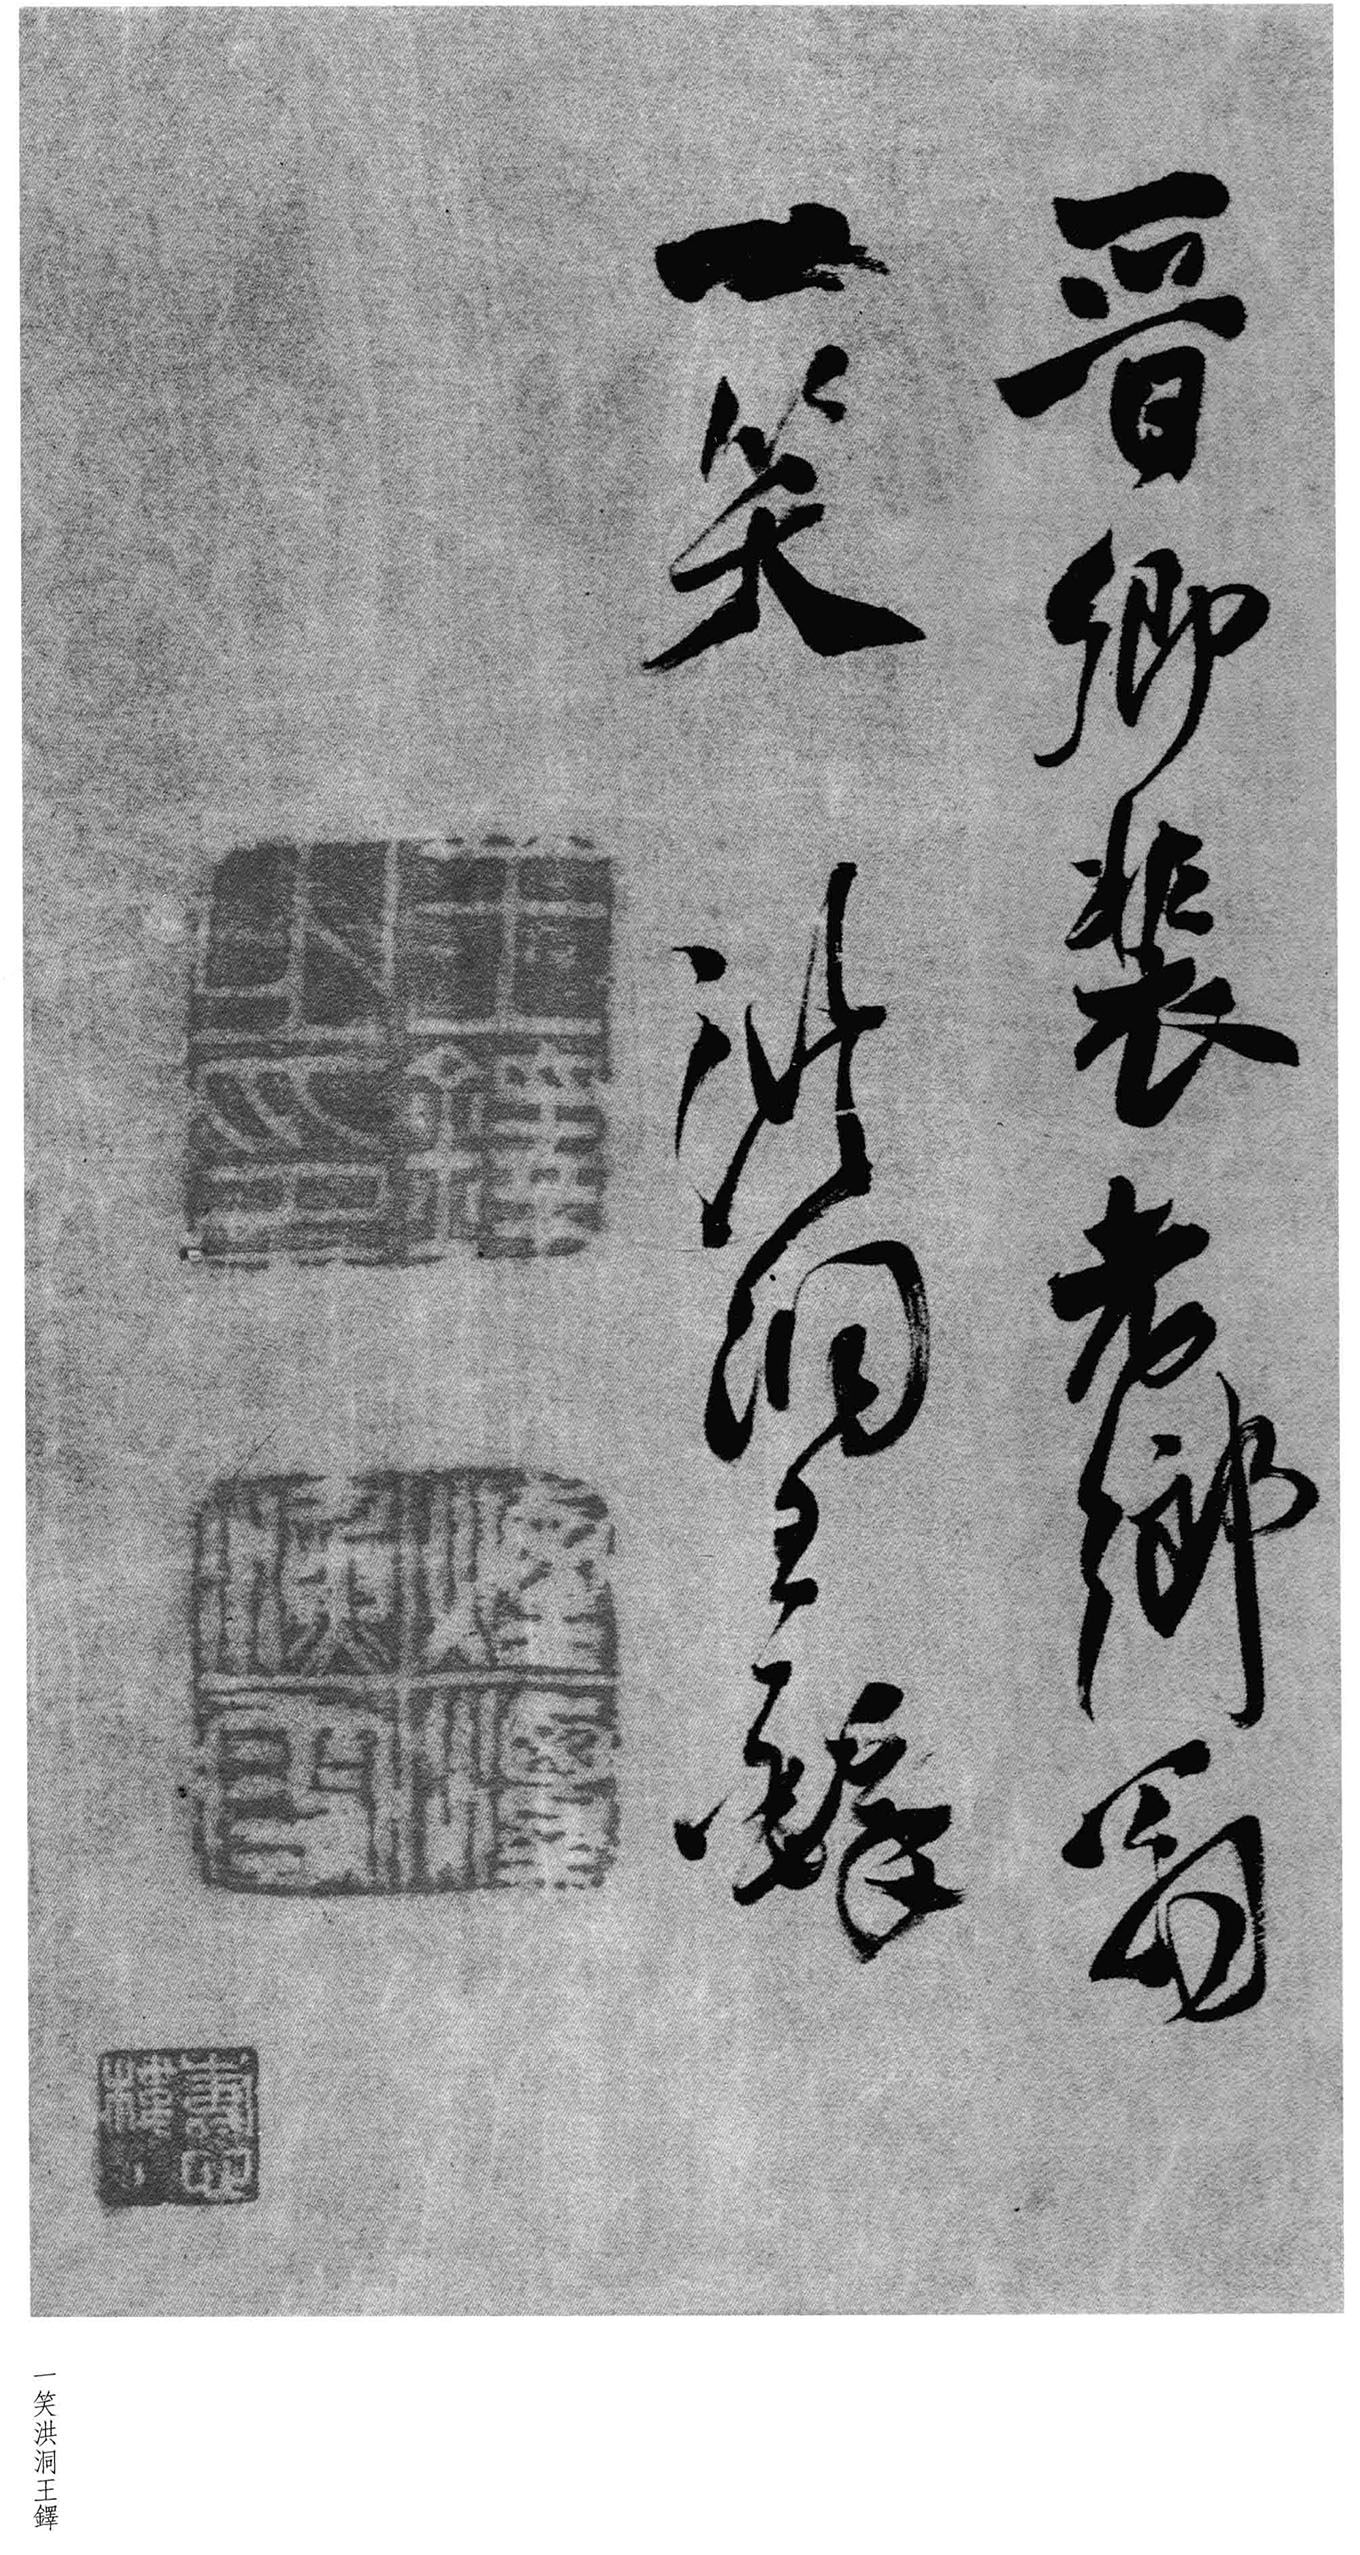 晋卿裴老鄉翁
一笑洪洞王鐸
一笑洪洞王鐸